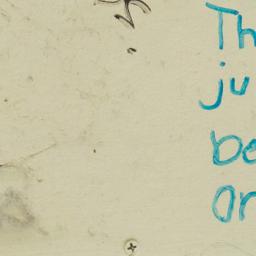 Th
ju
be
or